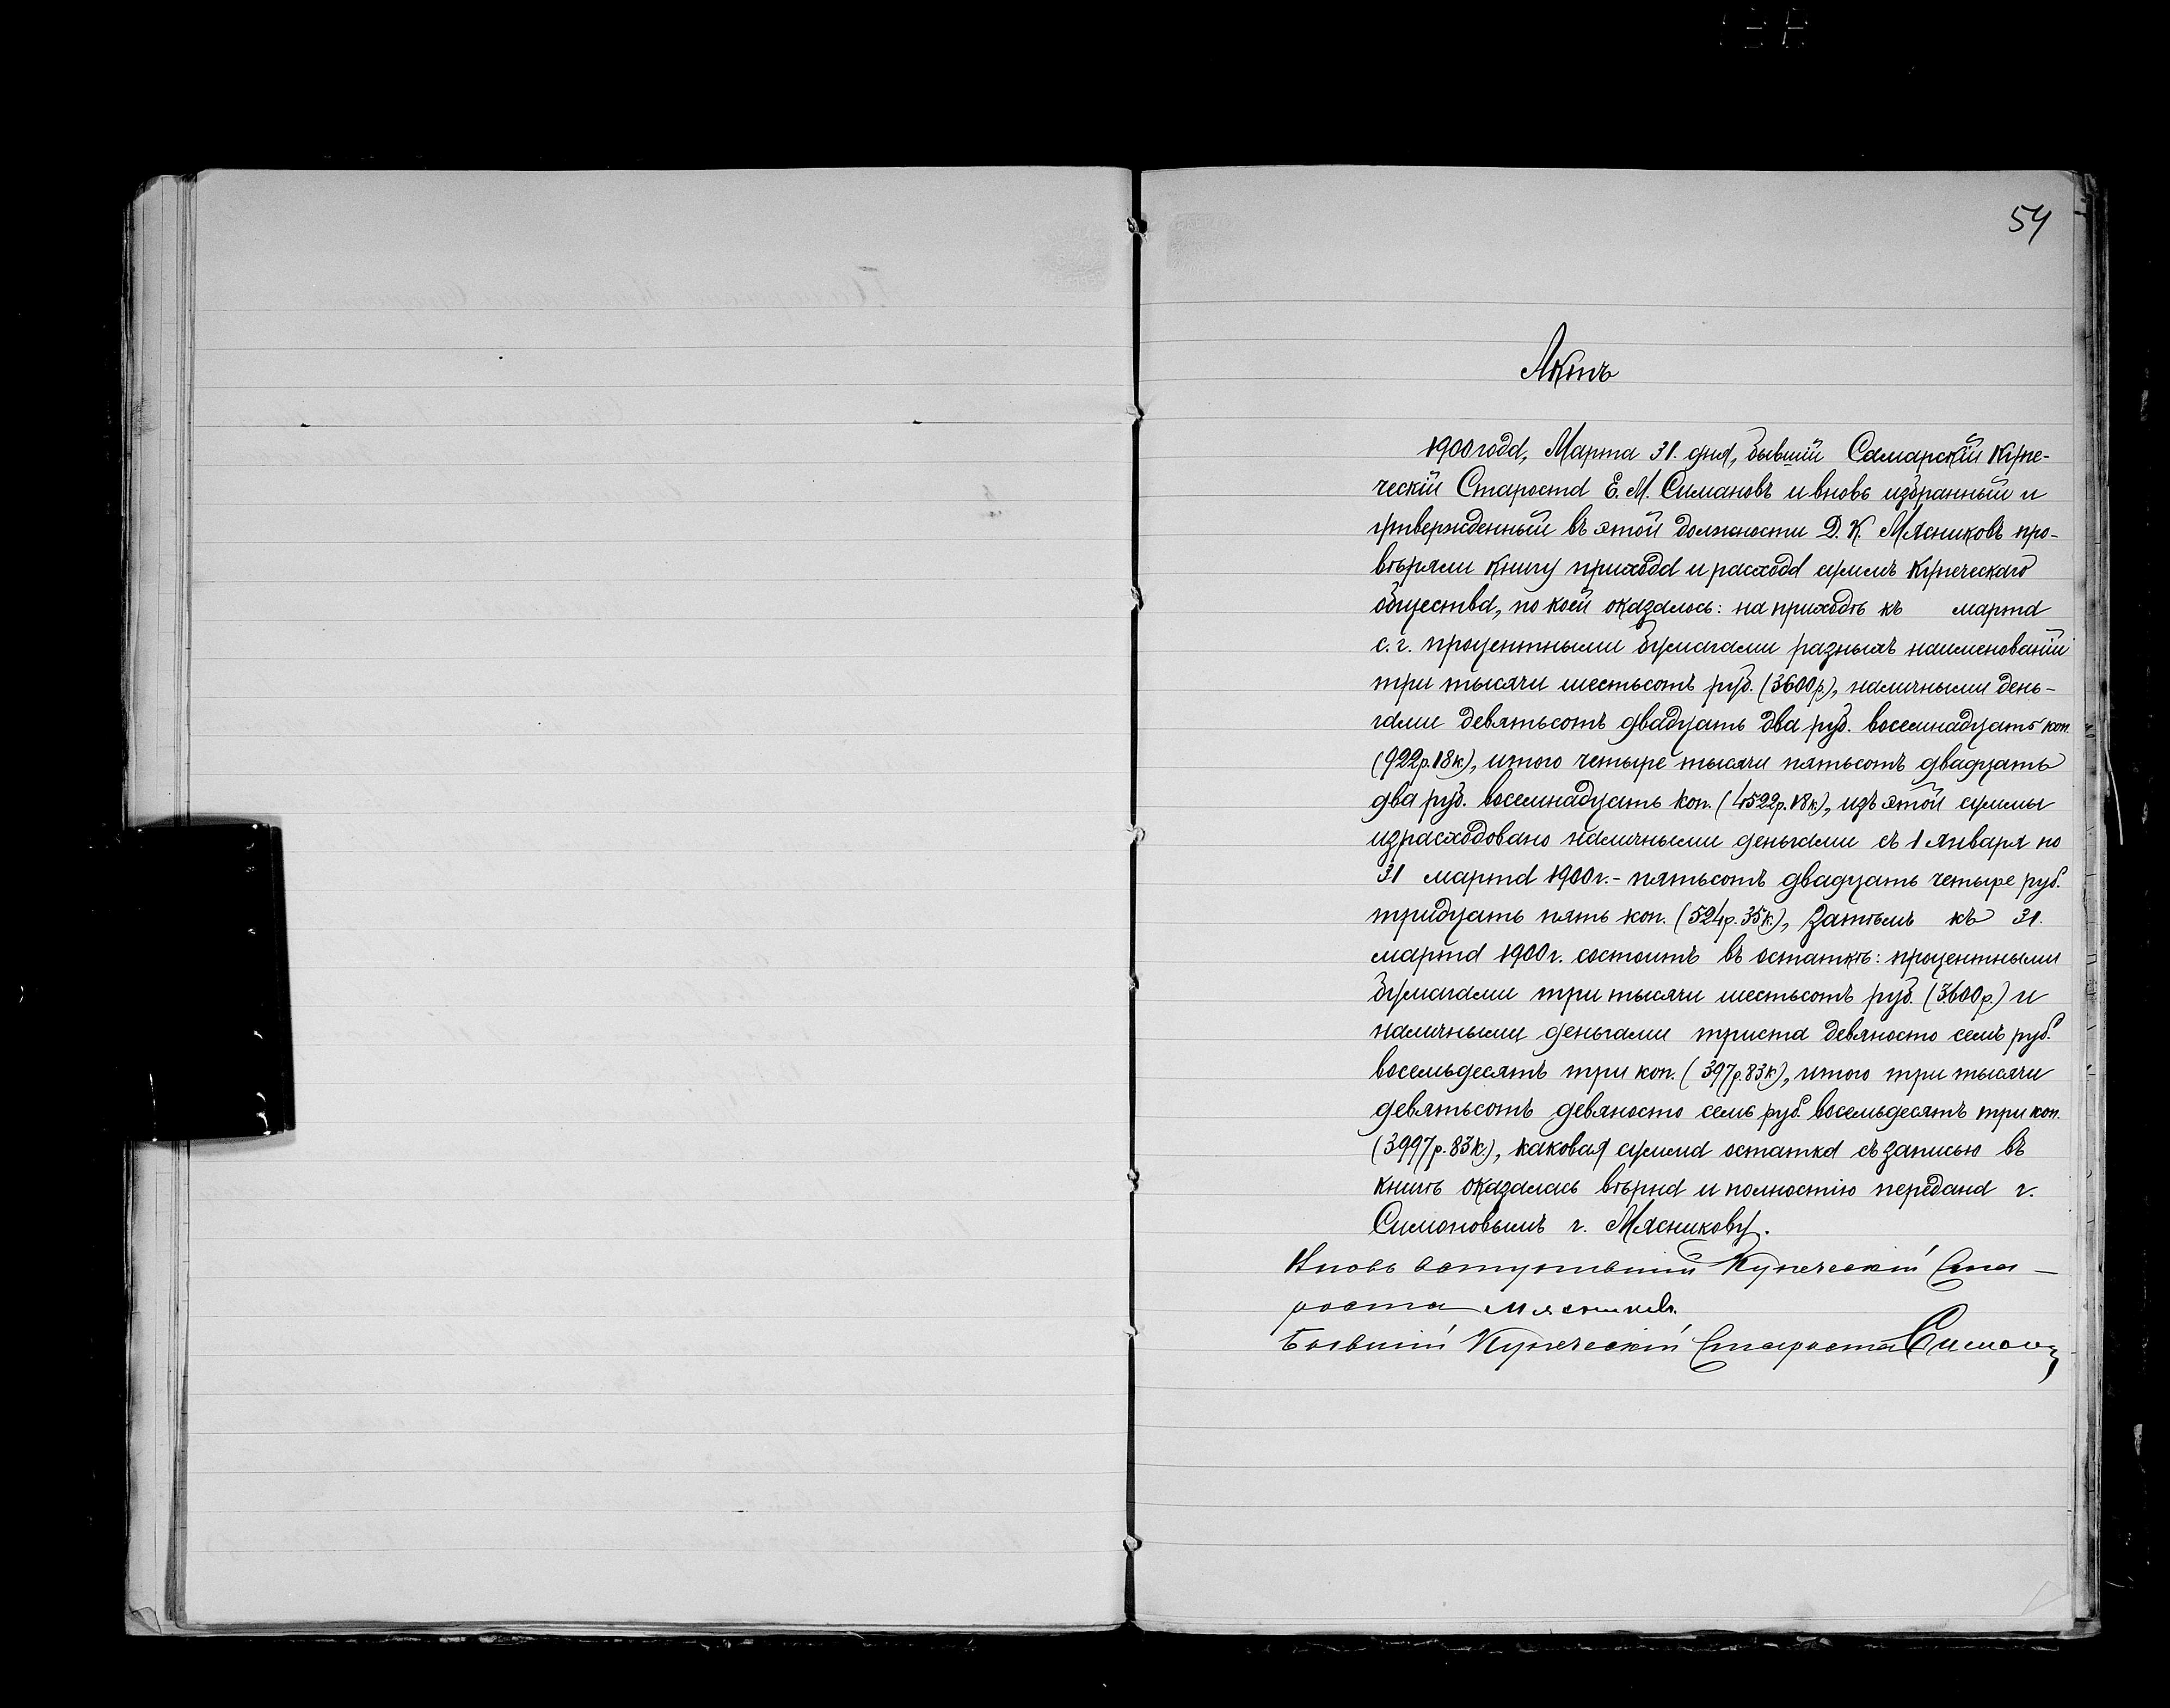 54
Актъ
1900 года, Марта 31. дня, бывшій Самарскій Купе-
ческій Староста Е. М. Симановъ и вновь избранный и
утвержденный въ этой должности Д. К. Мясниковъ про-
вѣряли книгу прихода и расхода суммъ Купеческаго
общества, по коей оказалось: на приходѣ къ марта
с. г. процентными бумагами разныхъ наименованій
три тысячи шестьсотъ руб. (3600 р.), наличными день-
гами девятьсотъ двадцать два руб. восемнадцать коп.
(922 р. 18 к.), итого четыре тысячи пятьсотъ двадцать
два руб. восемнадцать коп. (4522 р. 18 к.), изъ этой суммы
израсходовано наличными деньгами съ 1 Января по
31 марта 1900 г. - пятьсотъ двадцать четыре руб.
тридцать пять коп. (524 р. 35 к.), Затѣмъ къ 31.
марта 1900 г. состоитъ въ остаткѣ: процентными
бумагами три тысячи шестьсотъ руб. (3600 р.) и
наличными деньгами триста девяносто семь руб.
восемьдесятъ три коп. (397 р. 83 к), итого три тысячи
девятьсотъ девяносто семь руб. восемьдесятъ три коп.
(3997 р. 83 к.), каковая сумма остатка съ записью въ
книгѣ оказалась вѣрна и полностію передана г.
Симоновымъ г. Мясникову.
Вновь вступившій Купеческій Ста-
роста Мясниковъ.
Бывшій Купеческій Староста Симонъ